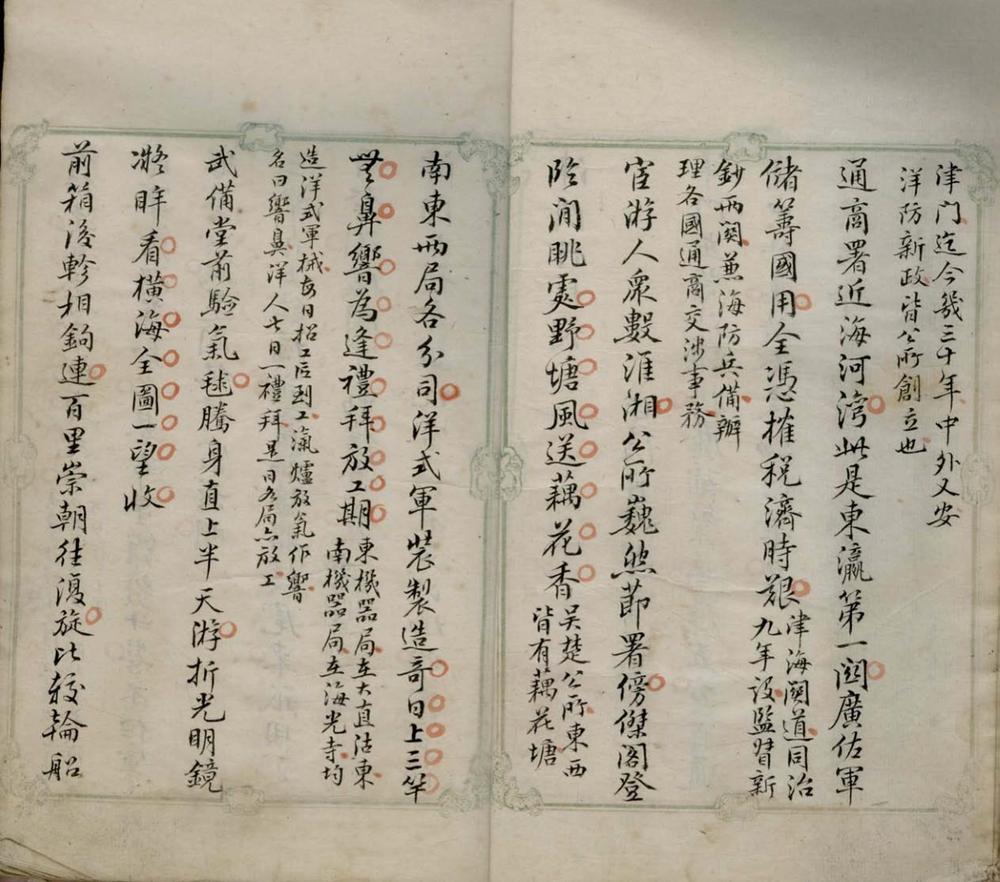 津门迄今幾三十年中外乂安
洋防新政皆公所創立也
通商署近海河灣此是東瀛第一關廣佐軍
儲籌國用全憑榷稅濟時艱津海關道同治
九年設監督新
鈔両関兼海防兵備辦
理各國通商交涉事務
宦游人眾數淮湘公所巍然節署傍傑閣登
臨閒眺處野塘風送藕花香吴楚公所東西
皆有藕花塘
南東両局各分司洋式軍裝製造奇日上三竿
鼻響為逢禮拜放工期東機器局在大直沽東
南機器局在海光寺均
造洋式軍械每日招工匠到工滊爐放氣作響
名曰響鼻洋人七日一禮拜是日各局亦放工
武備堂前驗氣毬騰身直上半天游折光明鏡
凝眸看橫海全圖一望收
前箱後軫相鉤連百里崇朝往復旋比較輪船